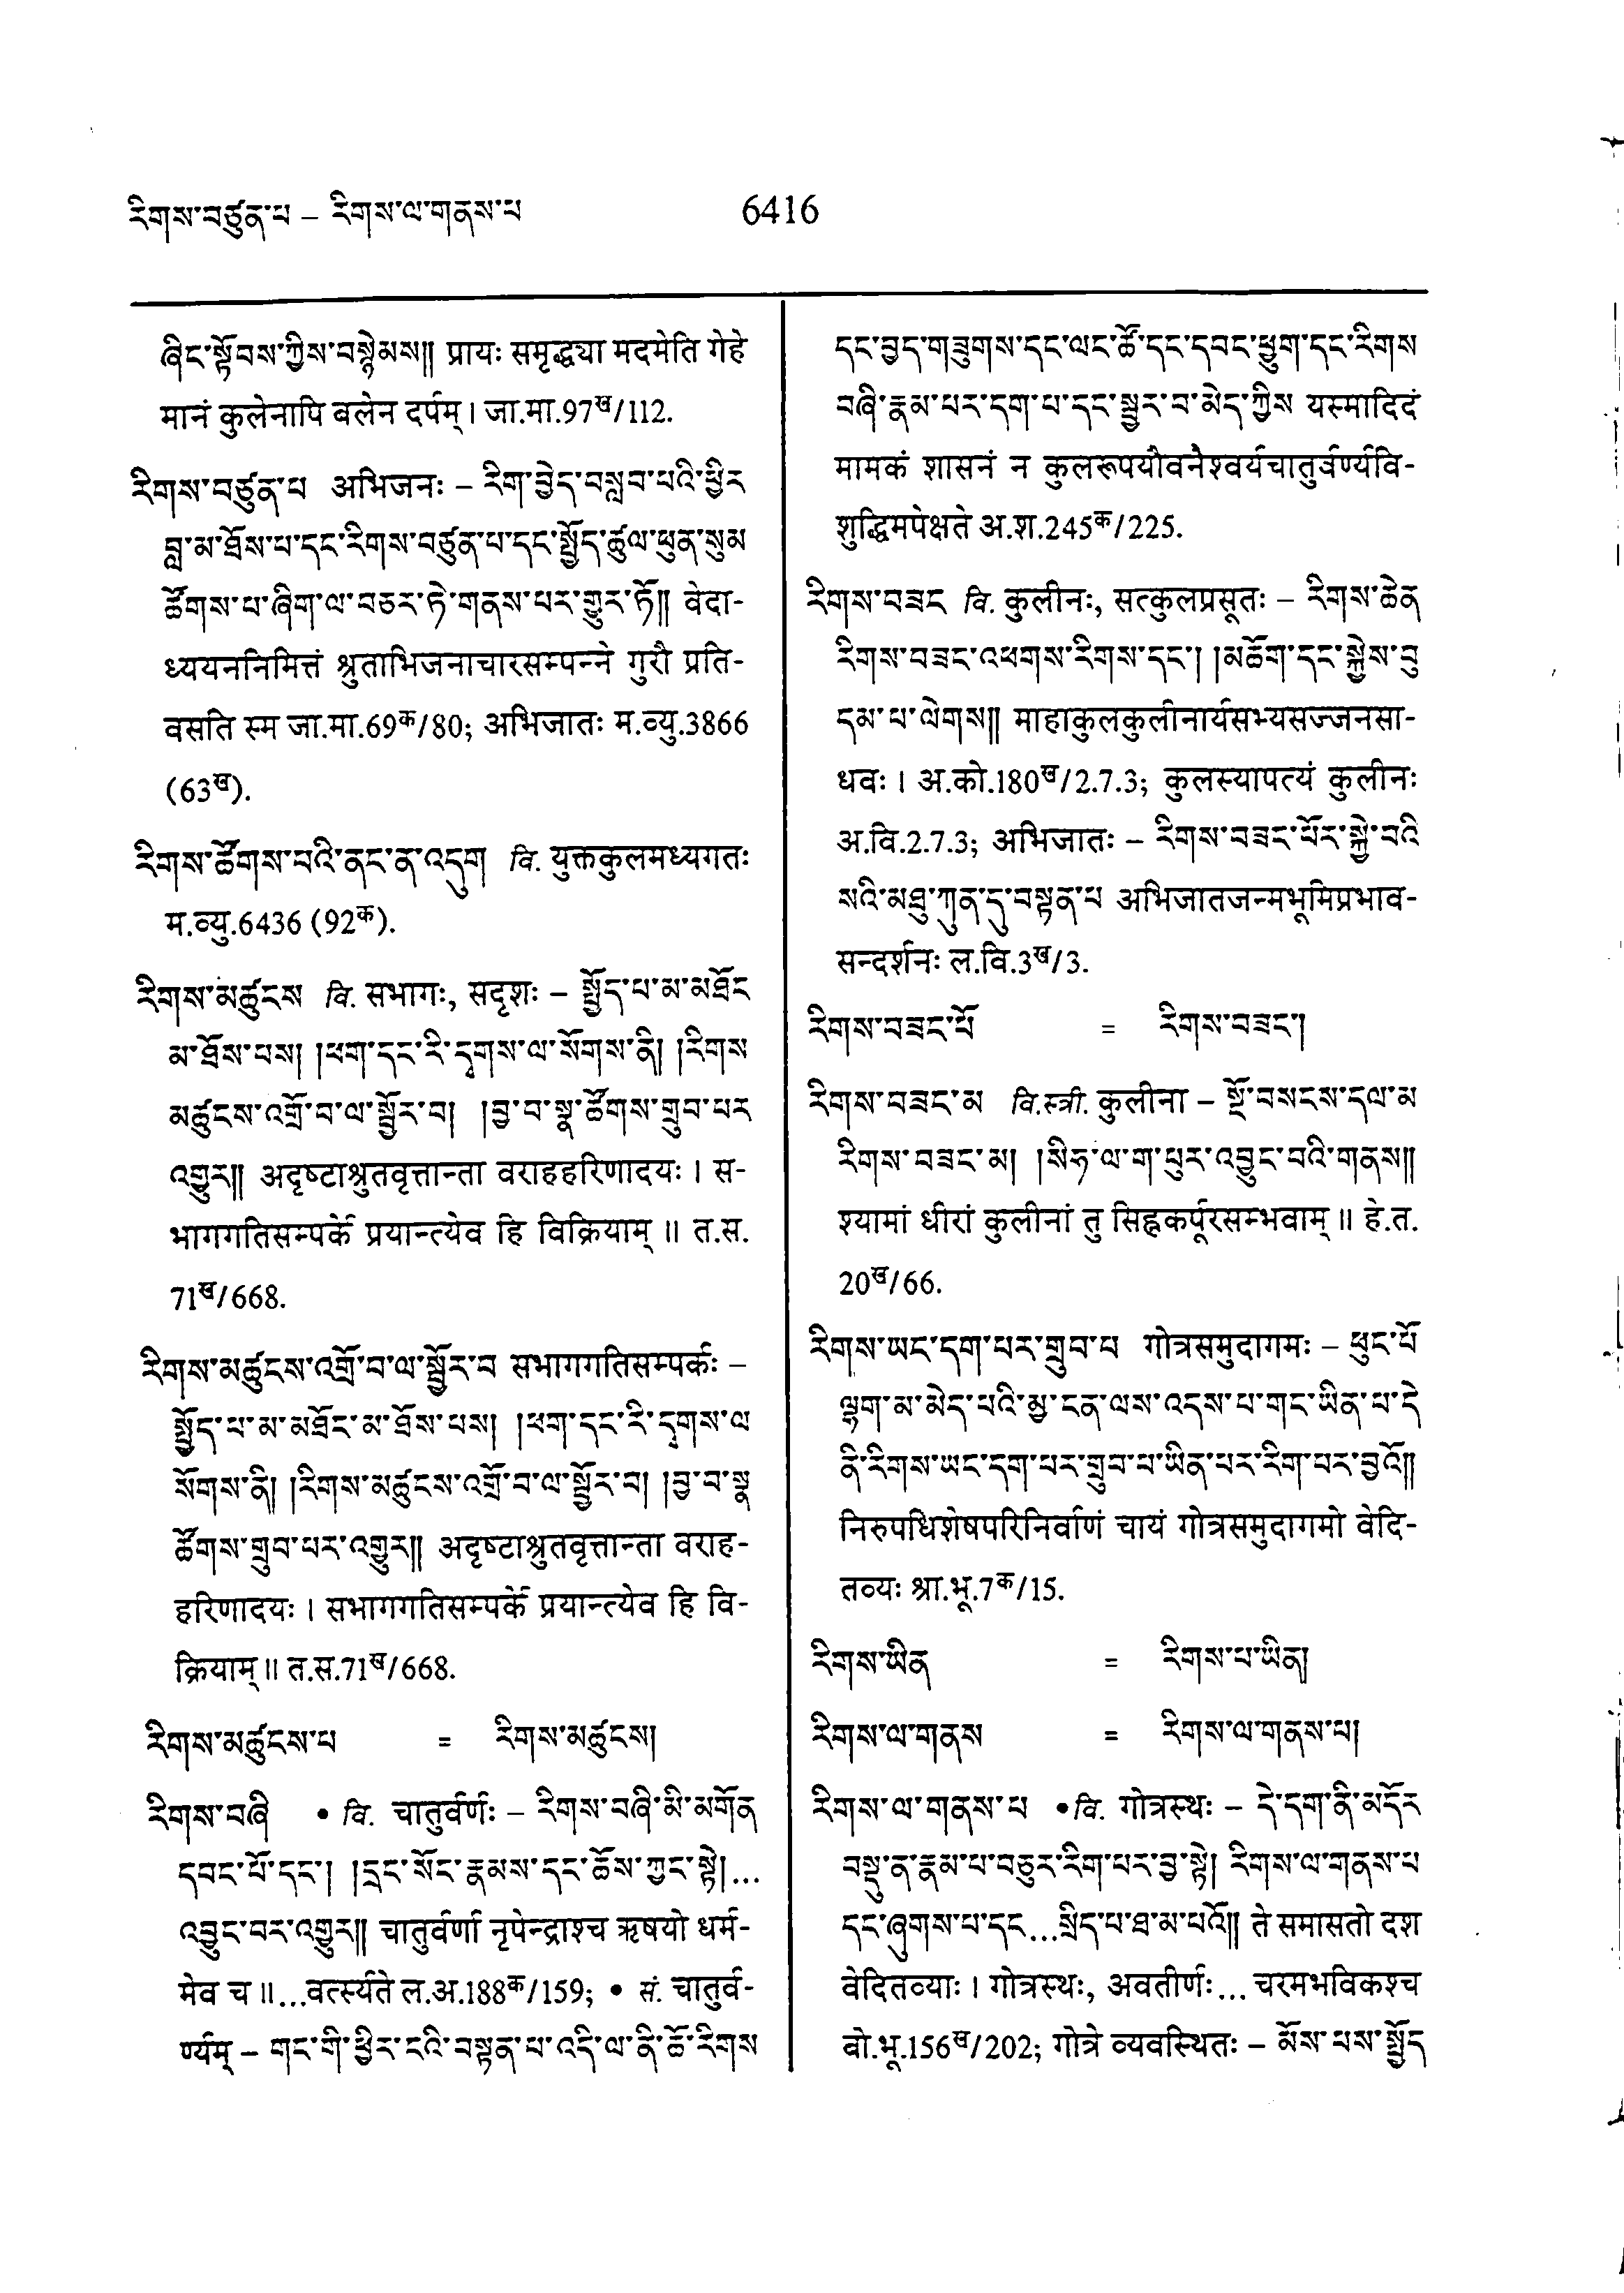 རིགས་བཙུན་པ – རིགས་ལ་གནས་པ
6416
ཞིང་སྟོབས་ཀྱིས་བསྙེམས༎ प्रायः समृद्ध्या मदमेति गेहे
मानं कुलेनापि बलेन दर्पम् । जा.मा.97ख/112.
རིགས་བཙུན་པ अभिजनः – རིག་བྱེད་བསླབ་པའི་ཕྱིར
བླ་མ་ཐོས་པ་དང་རིགས་བཙུན་པ་དང་སྤྱོད་ཚུལ་ཕུན་སུམ
ཚོགས་པ་ཞིག་ལ་བཅར་ཏེ་གནས་པར་གྱུར་ཏོ༎ वेदा-
ध्ययननिमित्तं श्रुताभिजनाचारसम्पन्ने गुरौ प्रति-
वसति स्म जा.मा.69क/80; अभिजातः म.व्यु.3866
(63ख).
རིགས་ཚོགས་པའི་ནང་ན་འདུག वि. युक्तकुलमध्यगतः
म.व्यु.6436 (92क).
རིགས་མཚུངས वि. सभागः, सदृशः – སྤྱོད་པ་མ་མཐོང
མ་ཐོས་པས། །ཕག་དང་རི་དྭགས་ལ་སོགས་ནི། །རིགས
མཚུངས་འགྲོ་བ་ལ་སྦྱོར་བ། །བྱ་བ་སྣ་ཚོགས་གྲུབ་པར
འགྱུར༎ अदृष्टाश्रुतवृत्तान्ता वराहहरिणादयः । स-
भागगतिसम्पर्के प्रयान्त्येव हि विक्रियाम् ॥ त.स.
71ख/668.
རིགས་མཚུངས་འགྲོ་བ་ལ་སྦྱོར་བ सभागगतिसम्पर्कः –
སྤྱོད་པ་མ་མཐོང་མ་ཐོས་པས། །ཕག་དང་རི་དྭགས་ལ
སོགས་ནི། །རིགས་མཚུངས་འགྲོ་བ་ལ་སྦྱོར་བ། །བྱ་བ་སྣ
ཚོགས་གྲུབ་པར་འགྱུར༎ अदृष्टाश्रुतवृत्तान्ता वराह-
हरिणादयः । सभागगतिसम्पर्के प्रयान्त्येव हि वि-
क्रियाम् ॥ त.स.71ख/668.
རིགས་མཚུངས་པ = རིགས་མཚུངས།
རིགས་བཞི • वि. चातुर्वर्णः – རིགས་བཞི་མི་མགོན
དབང་པོ་དང་། །དྲང་སོང་རྣམས་དང་ཆོས་ཀྱང་སྟེ།...
འབྱུང་བར་འགྱུར༎ चातुर्वर्णा नृपेन्द्राश्च ऋषयो धर्म-
मेव च ॥...वर्त्स्यते ल.अ.188क/159; • सं. चातुर्व-
र्ण्यम् – གང་གི་ཕྱིར་ངའི་བསྟན་པ་འདི་ལ་ནི་ཚོ་རིགས
དང་བྱད་གཟུགས་དང་ལང་ཚོ་དང་དབང་ཕྱུག་དང་རིགས
བཞི་རྣམ་པར་དག་པ་དང་སྦྱར་བ་མེད་ཀྱིས यस्मादिदं
मामकं शासनं न कुलरूपयौवनैश्वर्यचातुर्वर्ण्यवि-
शुद्धिमपेक्षते अ.श.245क/225.
རིགས་བཟང वि. कुलीनः, सत्कुलप्रसूतः – རིགས་ཆེན
རིགས་བཟང་འཕགས་རིགས་དང་། །མཆོག་དང་སྐྱེས་བུ
དམ་པ་ལེགས༎ माहाकुलकुलीनार्यसभ्यसज्जनसा-
धवः । अ.को.180ख/2.7.3; कुलस्यापत्यं कुलीनः
अ.वि.2.7.3; अभिजातः – རིགས་བཟང་པོར་སྐྱེ་བའི
སའི་མཐུ་ཀུན་ཏུ་བསྟན་པ अभिजातजन्मभूमिप्रभाव-
सन्दर्शनः ल.वि.3ख/3.
རིགས་བཟང་པོ = རིགས་བཟང་།
རིགས་བཟང་མ वि.स्त्री. कुलीना – སྔོ་བསངས་དལ་མ
རིགས་བཟང་མ། །སིཧ་ལ་ག་པུར་འབྱུང་བའི་གནས༎
श्यामां धीरां कुलीनां तु सिह्लकर्पूरसम्भवाम् ॥ हे.त.
20ख/66.
རིགས་ཡང་དག་པར་གྲུབ་པ गोत्रसमुदागमः – ཕུང་པོ
ལྷག་མ་མེད་པའི་མྱ་ངན་ལས་འདས་པ་གང་ཡིན་པ་དེ
ནི་རིགས་ཡང་དག་པར་གྲུབ་པ་ཡིན་པར་རིག་པར་བྱའོ༎
निरुपधिशेषपरिनिर्वाणं चायं गोत्रसमुदागमो वेदि-
तव्यः श्रा.भू.7क/15.
རིགས་ཡིན = རིགས་པ་ཡིན།
རིགས་ལ་གནས = རིགས་ལ་གནས་པ།
རིགས་ལ་གནས་པ •वि. गोत्रस्थः – དེ་དག་ནི་མདོར
བསྡུ་ན་རྣམ་པ་བཅུར་རིག་པར་བྱ་སྟེ། རིགས་ལ་གནས་པ
དང་ཞུགས་པ་དང...སྲིད་པ་ཐ་མ་པའོ༎ ते समासतो दश
वेदितव्याः । गोत्रस्थः, अवतीर्णः... चरमभविकश्च
बो.भू.156ख/202; गोत्रे व्यवस्थितः – མོས་པས་སྤྱོད